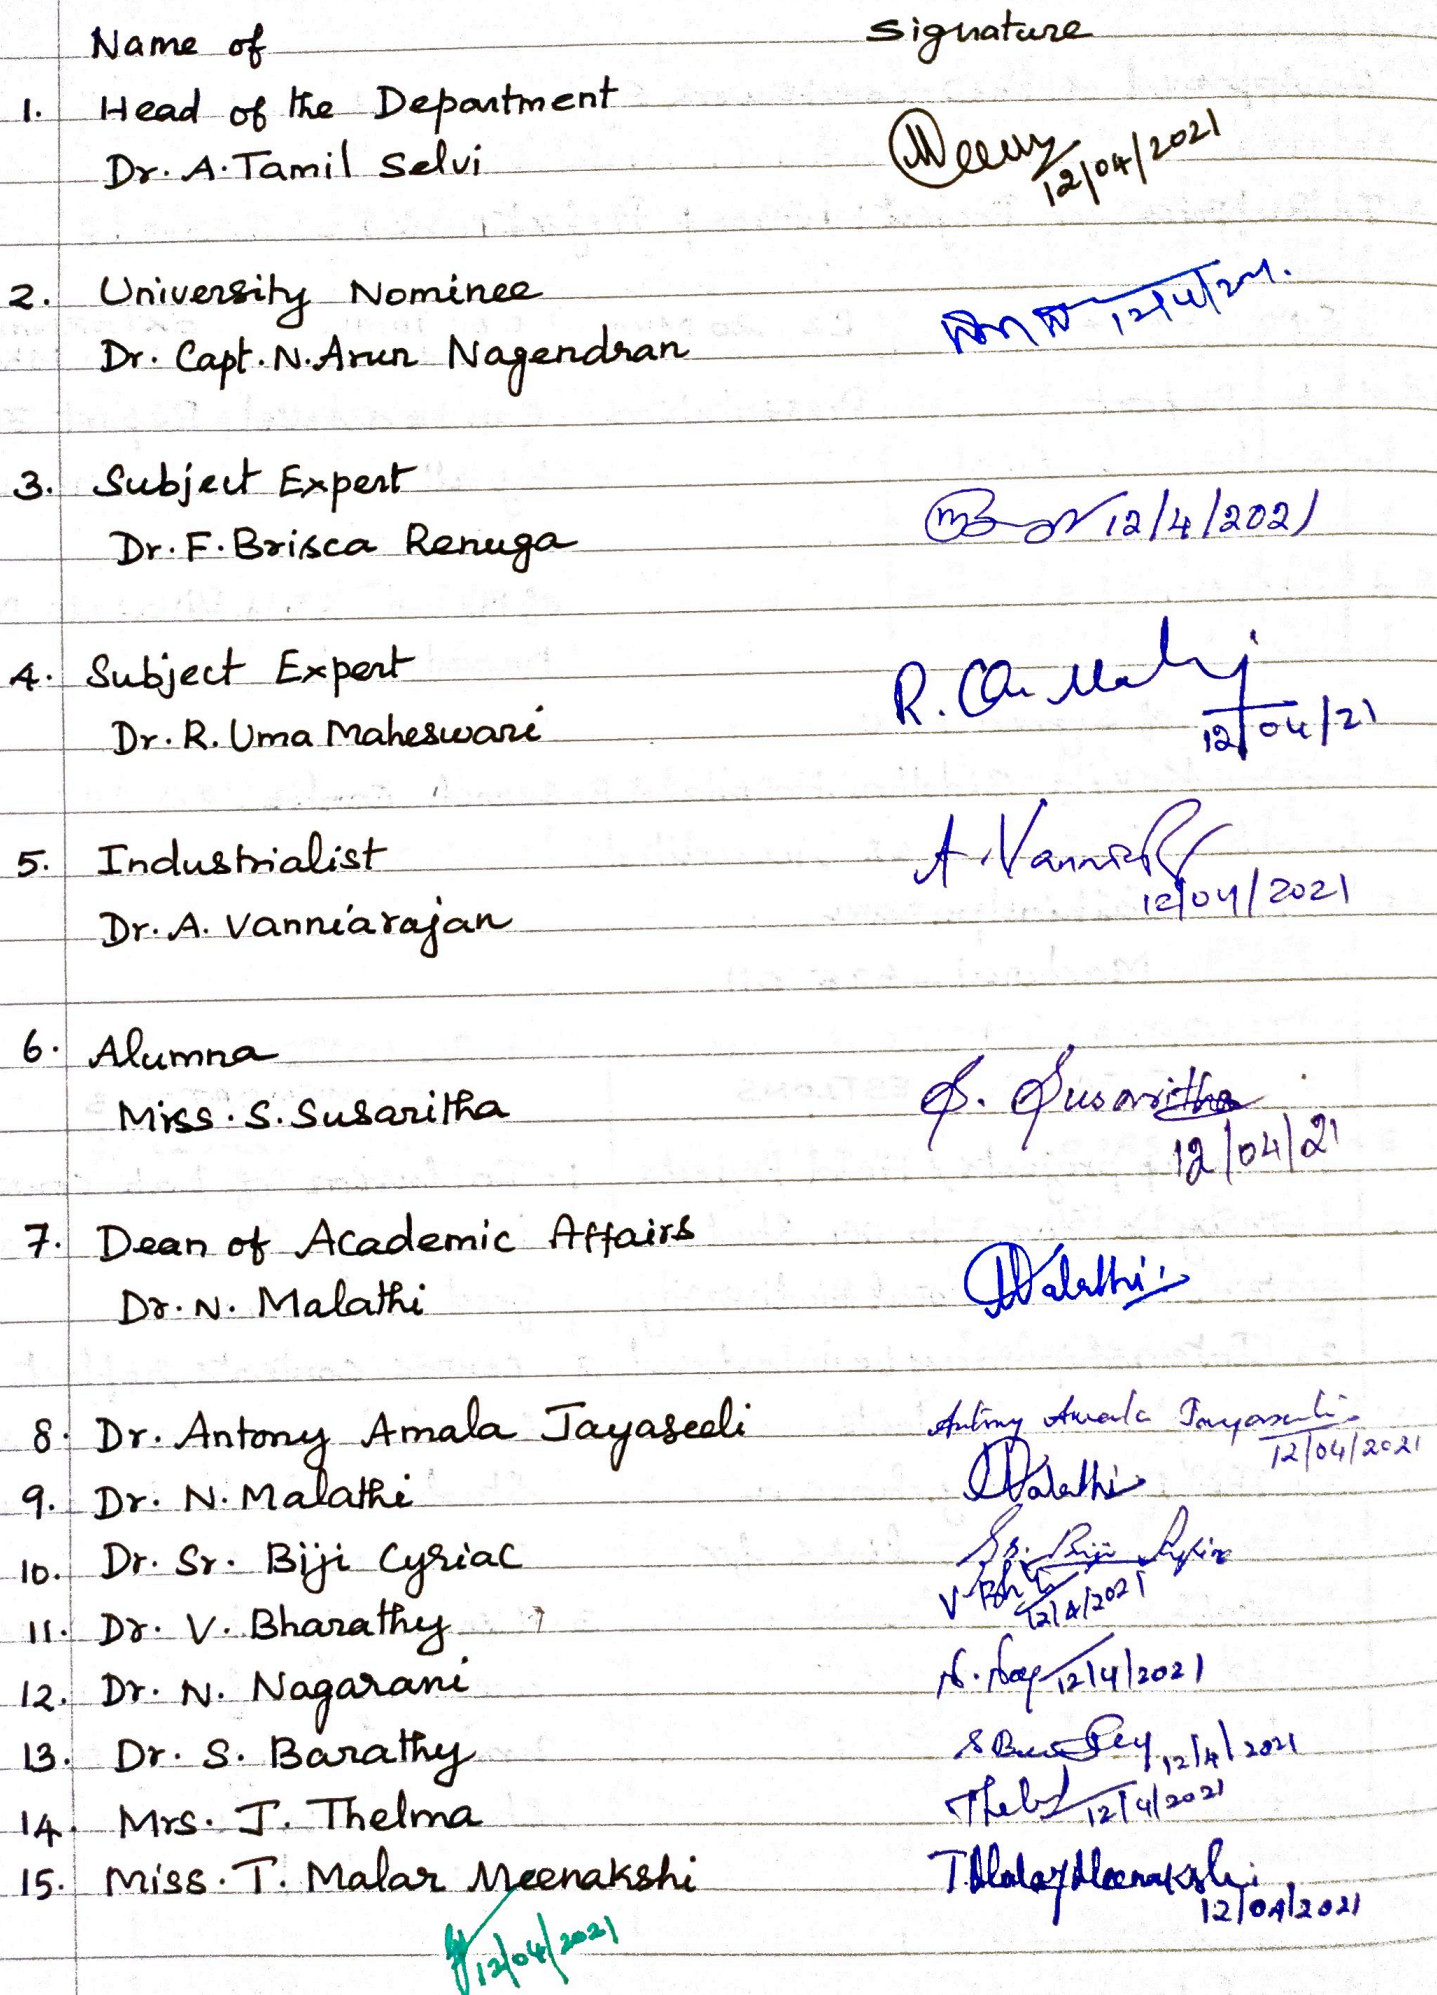 Name of Signature
1. Head of the Department
Dr. A. Tamil Selvi 12/04/2021
2. University Nominee
Dr. Capt. N. Arun Nagendran
3. Subject Expert
Dr. F. Brisca Renuga 12/4/2021
4. Subject Expert
Dr. R. Uma Maheswari R.
12/04/21
5. Industrialist A.
Dr. A. Vanniarajan 12/04/2021
6. Alumna
Miss. S. Susaritha S. Susaritha
12/04/21
7. Dean of Academic Affairs
Dr. N. Malathi Malathi
8. Dr. Antony Amala Jayaseeli Antony Amala Jayaseeli
12/04/2021
9. Dr. N. Malathi Malathi
10. Dr. Sr. Biji Cyriac Sr. Biji
11. Dr. V. Bharathy 12/4/2021
12. Dr. N. Nagarani N. 12/4/2021
13. Dr. S. Barathy 12/4/2021
14. Mrs. J. Thelma 12/4/2021
15. Miss. T. Malar Meenakshi T. Malar Meenakshi
12/04/2021
12/04/2021